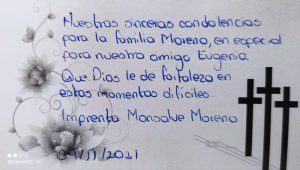 Nuestras sinceras condolencias
para la familia Moreno, en especial
para nuestro amigo Eugenio.
Que Dios le de fortaleza en
estos momentos dificiles.
Imprenta Monsalve Moreno
09/11/2021